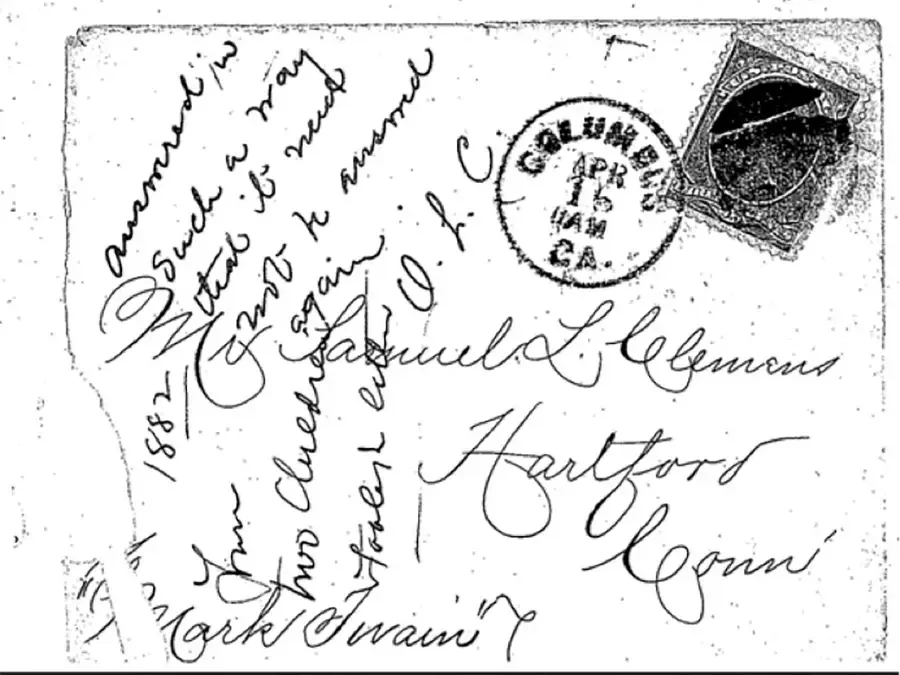 answered in
such a way
that it need
not be answered
again. O. L. C.
COLUMBUS
APR
15
11AM
GA.
Mr Samuel L. Clemens
Hartford
Conn
"Mark Twain"
1882
From
two children
foolish letter